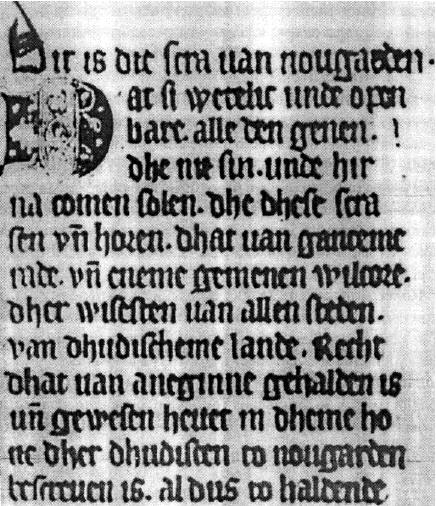 Hir is die scra uan nougarden.
Dat si wetelic unde open
bare. alle den genen.
dhe nu sin. unde hir
na comen solen. dhe dhese scra
sen vn̄ horen. dhat uan ganceme
rade. vn̄ eneme gemenen wilcore.
dher wisesten uan allen steden.
van dhudischeme lande. Recht
dhat uan aneginne gehalden is
un̄ gewesen heuet in dheme ho
ue dher dhudisten to nougarden
bescreuen is. al dus to haldende